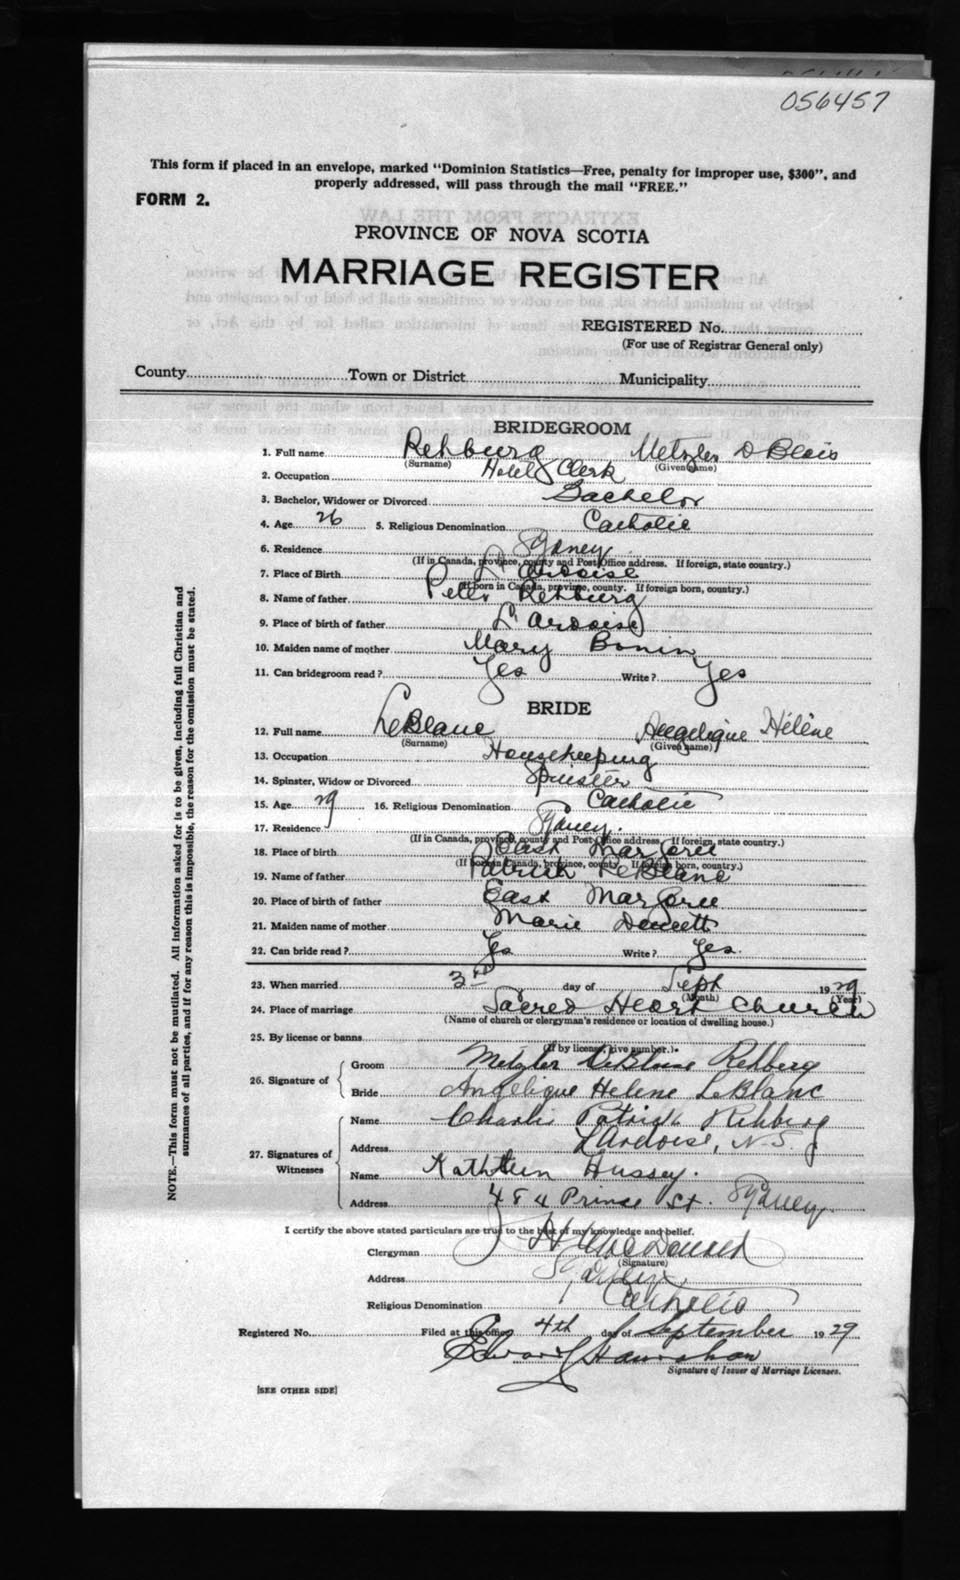 056457
This form if placed in an envelope, marked "Dominion Statistics—Free, penalty for improper use, $300", and
properly addressed, will pass through the mail "FREE."
FORM 2.
PROVINCE OF NOVA SCOTIA
MARRIAGE REGISTER
REGISTERED No.
(For use of Registrar General only)
County Town or District Municipality
BRIDEGROOM
1. Full name Rehburg Metzler D Blois
(Surname) (Given name)
2. Occupation Hotel Clerk
3. Bachelor, Widower or Divorced Bachelor
4. Age 26 5. Religious Denomination Catholic
6. Residence Sydney
(If in Canada, province, county and Post Office address. If foreign, state country.)
7. Place of Birth L'Ardoise
(If born in Canada, province, county. If foreign born, country.)
8. Name of father Peter Rehburg
9. Place of birth of father L'Ardoise
10. Maiden name of mother Mary Bonin
11. Can bridegroom read? Yes Write? Yes
BRIDE
12. Full name LeBlanc Angelique Hélène
(Surname) (Given name)
13. Occupation Housekeeping
14. Spinster, Widow or Divorced Spinster
15. Age 29 16. Religious Denomination Catholic
17. Residence Sydney.
(If in Canada, province, county and Post Office address. If foreign, state country.)
18. Place of birth East Margaree
(If born in Canada, province, county. If foreign born, country.)
19. Name of father Patrick LeBlanc
20. Place of birth of father East Margaree
21. Maiden name of mother Marie
22. Can bride read? Yes Write? Yes.
23. When married 3rd day of Sept 1929
(Month) (Year)
24. Place of marriage Sacred Heart Church
(Name of church or clergyman's residence or location of dwelling house.)
25. By license or banns
(If by license, give number.)
26. Signature of Groom Metzler DeBlois Rehberg
Bride Angelique Helene LeBlanc
27. Signatures of Witnesses Name Charlie Patrick Rehberg
Address L'Ardoise, N.S.
Name Kathleen Hussey.
Address 484 Prince St. Sydney.
I certify the above stated particulars are true to the best of my knowledge and belief.
Clergyman J H MacDonald
(Signature)
Address Sydney
Religious Denomination Catholic
Registered No. Filed at this office 4th day of September 1929
Edward Hanrahan
Signature of Issuer of Marriage Licenses.
[SEE OTHER SIDE]
NOTE.—This form must not be mutilated. All information asked for is to be given, including full Christian and
surnames of all parties, and if for any reason this is impossible, the reason for the omission must be stated.